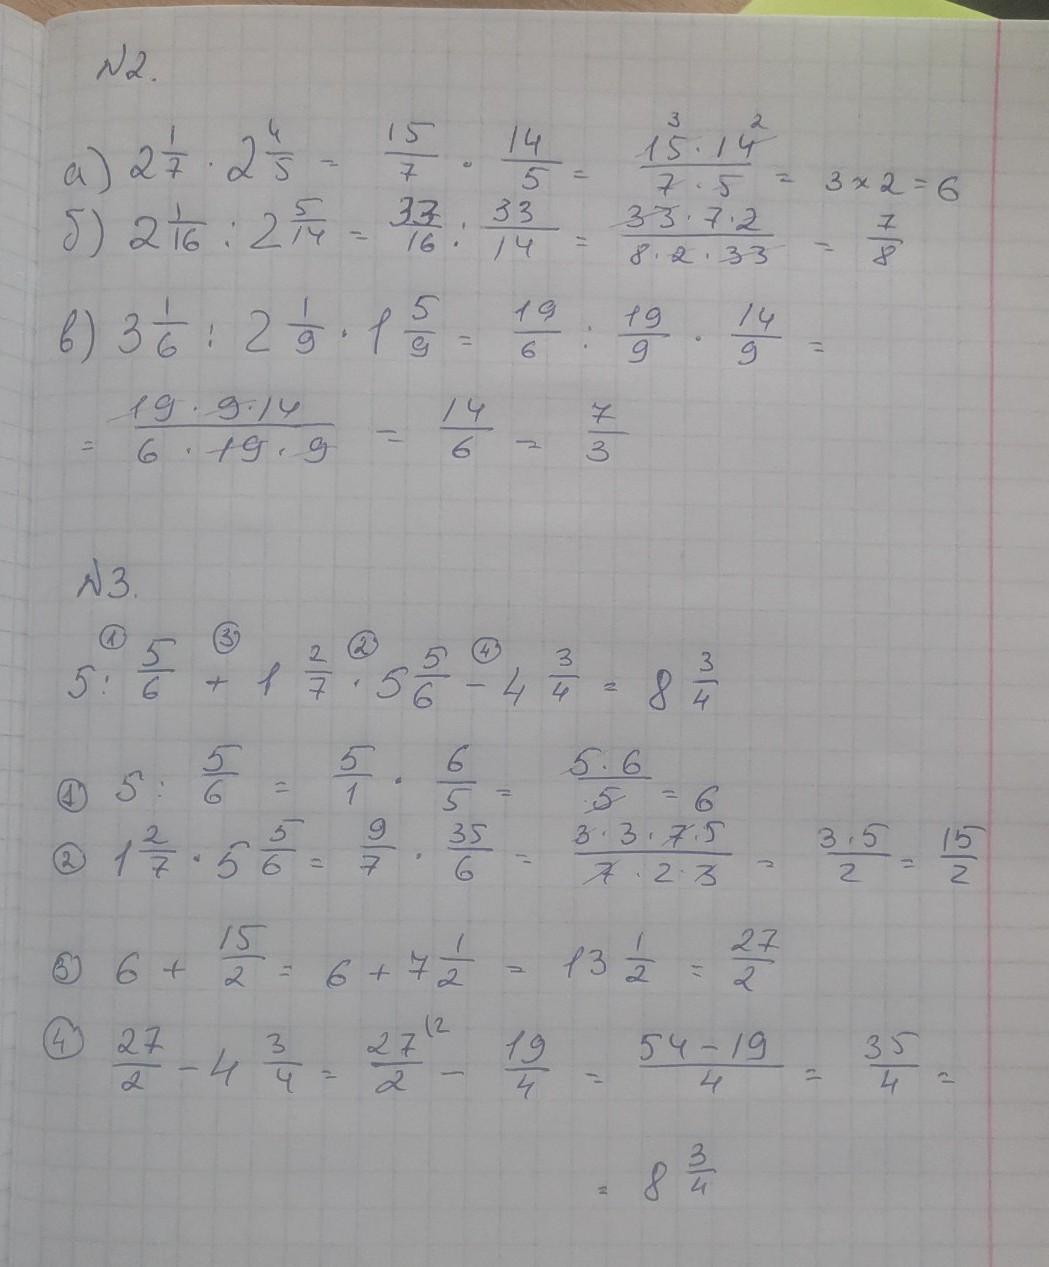 №2.
а) 2 1/7 · 2 4/5 = 15/7 · 14/5 = 15³ · 14² / 7 · 5 = 3 × 2 = 6
б) 2 1/16 : 2 5/14 = 33/16 : 33/14 = 33 · 7 · 2 / 8 · 2 · 33 = 7/8
в) 3 1/6 : 2 1/9 · 1 5/9 = 19/6 : 19/9 · 14/9 =
= 19 · 9 · 14 / 6 · 19 · 9 = 14/6 = 7/3
№3.
① ③ ② ④
5 : 5/6 + 1 2/7 · 5 5/6 - 4 3/4 = 8 3/4
① 5 : 5/6 = 5/1 · 6/5 = 5 · 6 / 5 = 6
② 1 2/7 · 5 5/6 = 9/7 · 35/6 = 3 · 3 · 7 · 5 / 7 · 2 · 3 = 3 · 5 / 2 = 15/2
③ 6 + 15/2 = 6 + 7 1/2 = 13 1/2 = 27/2
④ 27/2 - 4 3/4 = 27/2 (2 - 19/4 = 54 - 19 / 4 = 35/4 =
= 8 3/4